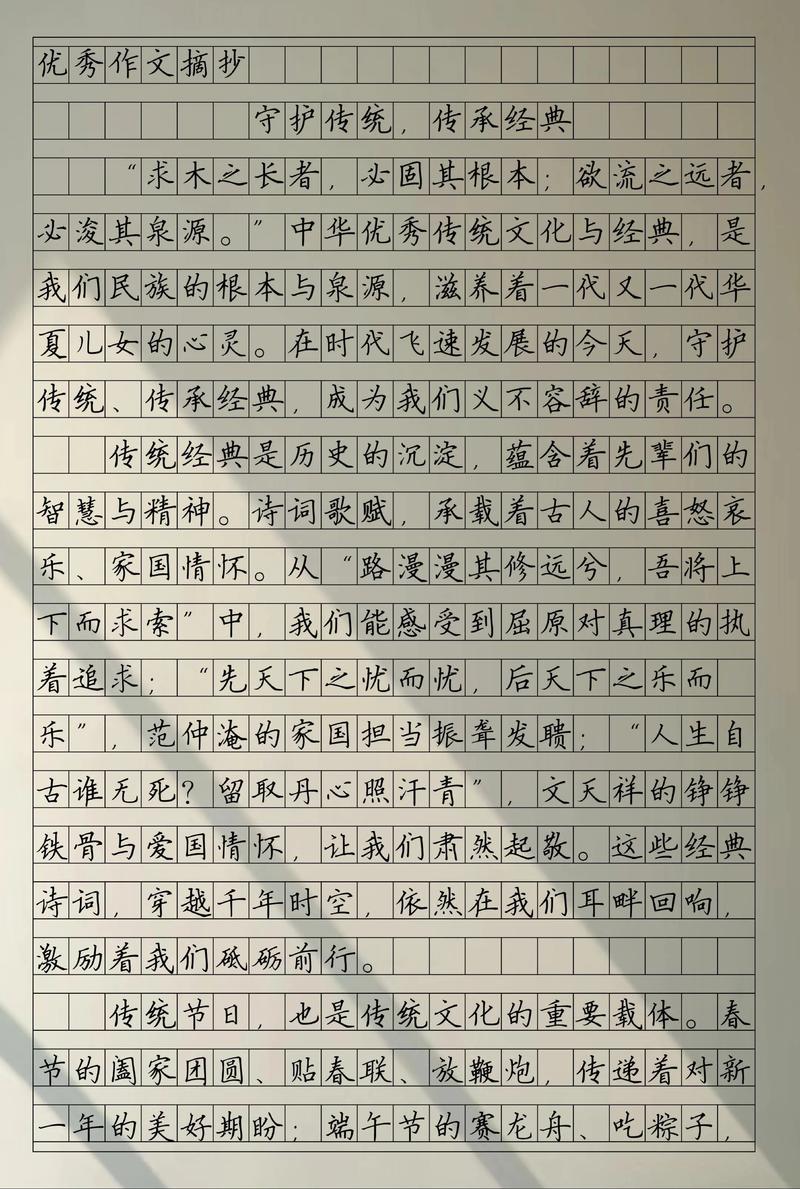 优秀作文摘抄
守护传统，传承经典
“求木之长者，必固其根本；欲流之远者，
必浚其泉源。”中华优秀传统文化与经典，是
我们民族的根本与泉源，滋养着一代又一代华
夏儿女的心灵。在时代飞速发展的今天，守护
传统、传承经典，成为我们义不容辞的责任。
传统经典是历史的沉淀，蕴含着先辈们的
智慧与精神。诗词歌赋，承载着古人的喜怒哀
乐、家国情怀。从“路漫漫其修远兮，吾将上
下而求索”中，我们能感受到屈原对真理的执
着追求；“先天下之忧而忧，后天下之乐而
乐”，范仲淹的家国担当振聋发聩；“人生自
古谁无死？留取丹心照汗青”，文天祥的铮铮
铁骨与爱国情怀，让我们肃然起敬。这些经典
诗词，穿越千年时空，依然在我们耳畔回响，
激励着我们砥砺前行。
传统节日，也是传统文化的重要载体。春
节的阖家团圆、贴春联、放鞭炮，传递着对新
一年的美好期盼；端午节的赛龙舟、吃粽子，